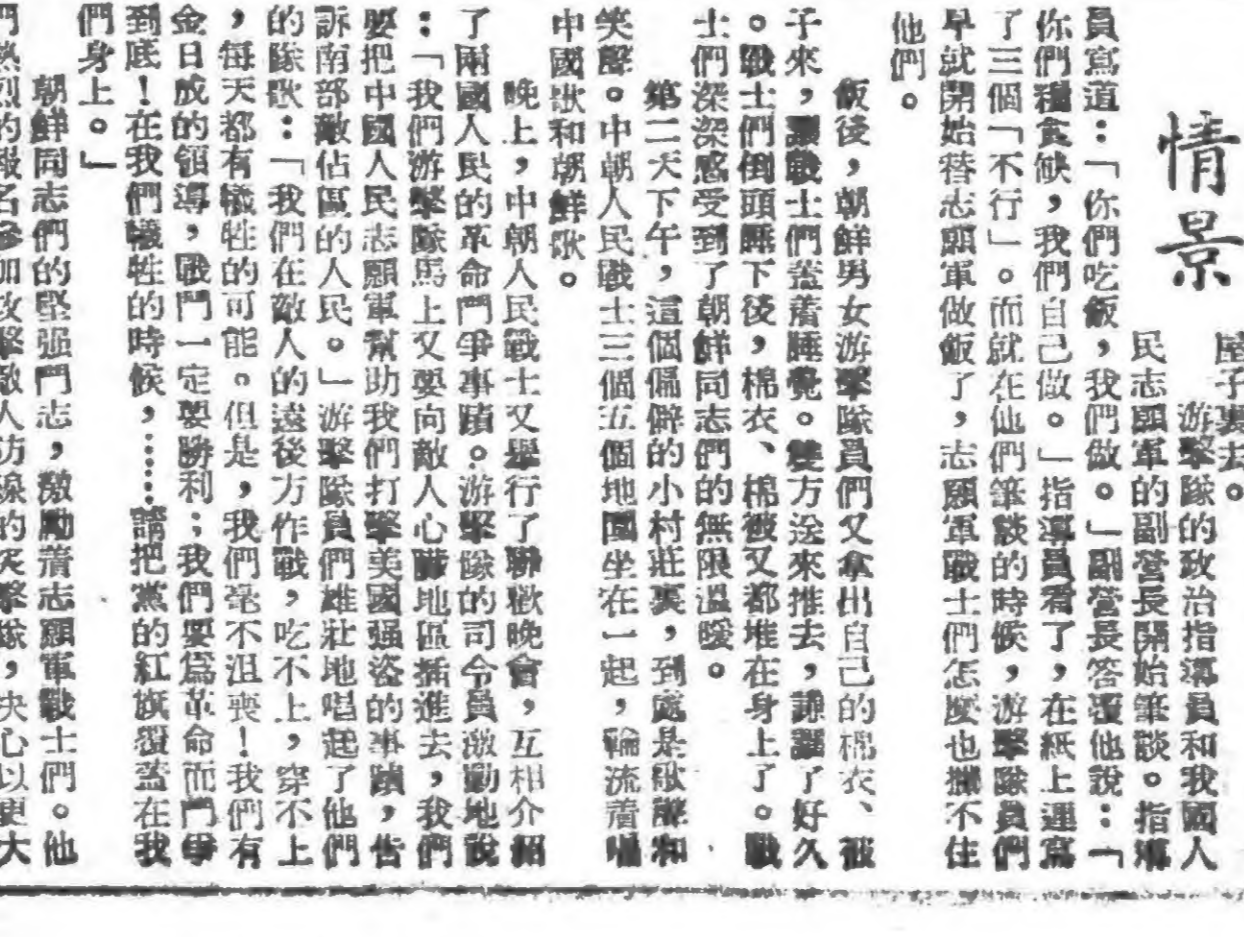 情景
屋子裏去。
游擊隊的政治指導員和我國人
民志願軍的副營長開始筆談。指導
員寫道：「你們吃飯，我們做。」副營長答覆他說：「
你們糧食缺，我們自己做。」指導員看了，在紙上連寫
了三個「不行」。而就在他們筆談的時候，游擊隊員們
早就開始替志願軍做飯了，志願軍戰士們怎麼也攔不住
他們。
飯後，朝鮮男女游擊隊員們又拿出自己的棉衣、被
子來，讓戰士們蓋着睡覺。雙方送來推去，謙讓了好久
。戰士們倒頭睡下後，棉衣、棉被又都堆在身上了。戰
士們深深感受到了朝鮮同志們的無限溫暖。
第二天下午，這個偏僻的小村莊裏，到處是歌聲和
笑聲。中朝人民戰士三個五個地圍坐在一起，輪流着唱
中國歌和朝鮮歌。
晚上，中朝人民戰士又舉行了聯歡晚會，互相介紹
了兩國人民的革命鬥爭事蹟。游擊隊的司令員激動地說
：「我們游擊隊馬上又要向敵人心臟地區插進去，我們
要把中國人民志願軍幫助我們打擊美國强盜的事蹟，告
訴南部敵佔區的人民。」游擊隊員們雄壯地唱起了他們
的隊歌：「我們在敵人的遠後方作戰，吃不上，穿不上
，每天都有犧牲的可能。但是，我們毫不沮喪！我們有
金日成的領導，戰鬥一定要勝利；我們要爲革命而鬥爭
到底！在我們犧牲的時候，……請把黨的紅旗覆蓋在我
們身上。」
朝鮮同志們的堅强鬥志，激勵着志願軍戰士們。他
們熱烈的報名參加攻擊敵人防線的突擊隊，決心以更大